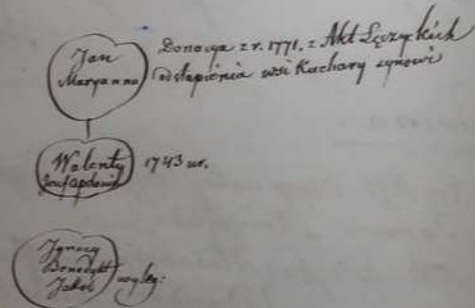 Jan
Maryanna
Donacya z r. 1771. z Akt Łęczyckich
odstąpienia wsi Kuchary synowi
Walenty
1743 ur.
Ignacy
Benedykt
wyleg: